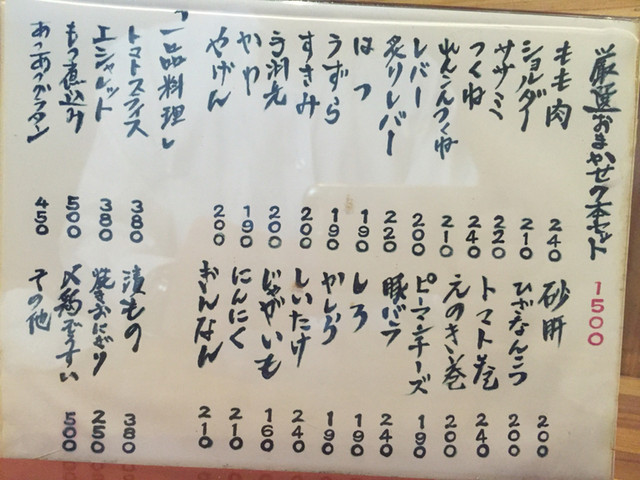 厳選おまかせ7本セット 1500
もも肉 240
ショルダー 210
ササミ 220
つくね 240
れんこんつくね 210
レバー 200
炙りレバー 220
はつ 190
うずら 190
すきみ 200
手羽先 200
かわ 190
やげん 200
砂肝 200
ひざなんこつ 200
トマト巻 240
えのき巻 200
ピーマンチーズ 190
豚バラ 240
しろ 190
かしら 190
しいたけ 240
じゃがいも 160
にんにく 210
ぎんなん 210
「一品料理」
トマトスライス 380
エシャレット 380
もつ煮込み 500
あつあつグラタン 450
漬もの 380
焼きおにぎり 250
〆鶏ぞうすい 500
その他